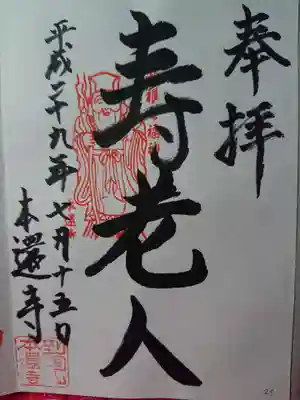 奉拝
寿老人
平成二十九年七月十五日
本還寺
27